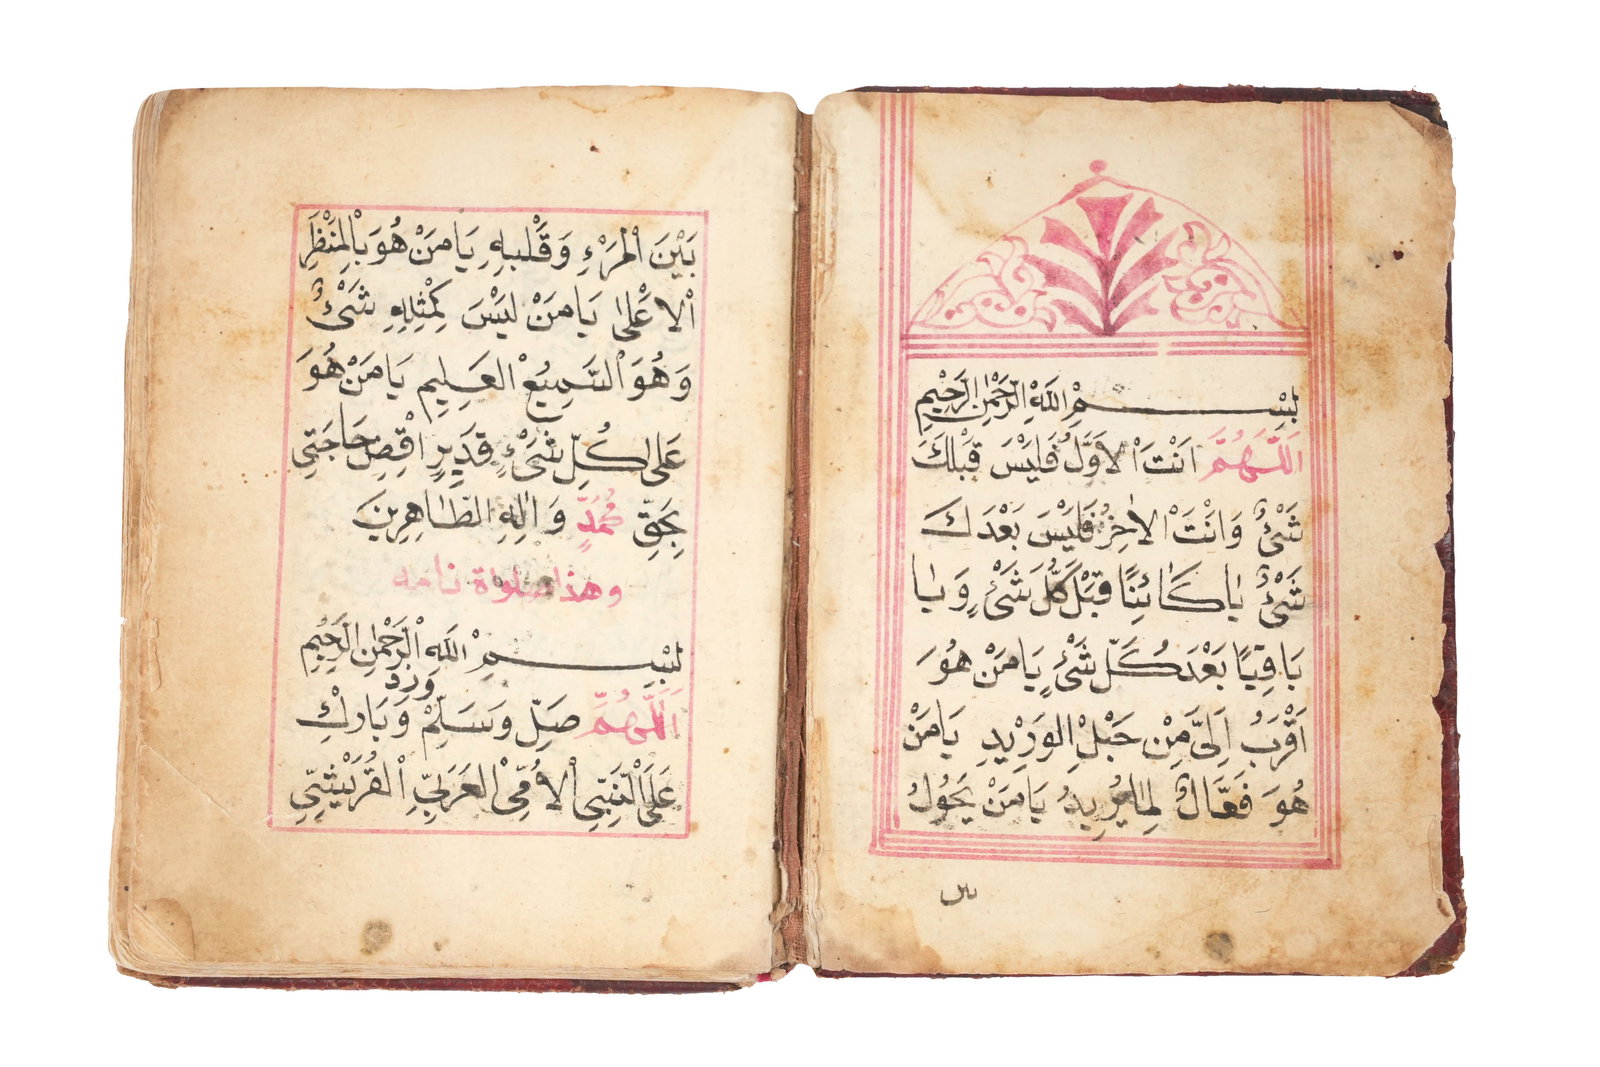 بِسْمِ اللّٰهِ الرَّحْمٰنِ الرَّحِيْمِ
اَللّٰهُمَّ اَنْتَ الْاَوَّلُ فَلَيْسَ قَبْلَكَ
شَىْءٌ وَاَنْتَ الْاٰخِرُ فَلَيْسَ بَعْدَكَ
شَىْءٌ يَا كَائِنًا قَبْلَ كُلِّ شَىْءٍ وَيَا
بَاقِيًا بَعْدَ كُلِّ شَىْءٍ يَا مَنْ هُوَ
اَقْرَبُ اِلَىَّ مِنْ حَبْلِ الْوَرِيْدِ يَا مَنْ
هُوَ فَعَّالٌ لِمَا يُرِيْدُ يَا مَنْ يَحُوْلُ
بين
بَيْنَ الْمَرْءِ وَقَلْبِهِ يَا مَنْ هُوَ بِالْمَنْظَرِ
الْاَعْلٰى يَا مَنْ لَيْسَ كَمِثْلِهِ شَىْءٌ
وَهُوَ السَّمِيْعُ الْعَلِيْمِ يَا مَنْ هُوَ
عَلٰى كُلِّ شَىْءٍ قَدِيْرٍ اقْضِ حَاجَتِى
بِحَقِّ مُحَمَّدٍ وَاٰلِهِ الطَّاهِرِيْنَ
وهذا صلواة نامه
بِسْمِ اللّٰهِ الرَّحْمٰنِ الرَّحِيْمِ
وَزِدْ
اَللّٰهُمَّ صَلِّ وَسَلِّمْ وَبَارِكْ
عَلَى النَّبِىِّ الْاُمِّىِّ الْعَرَبِىِّ الْقُرَيْشِىِّ